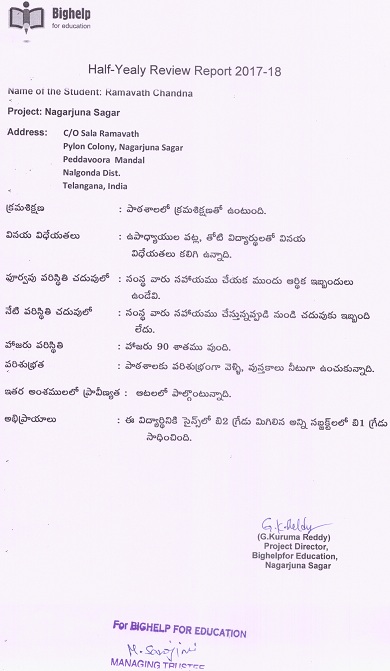 Bighelp
for education
Half-Yealy Review Report 2017-18
Name of the Student: Ramavath Chandna
Project: Nagarjuna Sagar
Address: C/O Sala Ramavath
Pylon Colony, Nagarjuna Sagar
Peddavoora Mandal
Nalgonda Dist.
Telangana, India
క్రమశిక్షణ : పాఠశాలలో క్రమశిక్షణతో ఉంటుంది.
వినయ విధేయతలు : ఉపాధ్యాయుల పట్ల, తోటి విద్యార్థులతో వినయ
విధేయతలు కలిగి ఉన్నాది.
పూర్వపు పరిస్థితి చదువులో : సంస్థ వారు సహాయము చేయక ముందు ఆర్థిక ఇబ్బందులు
ఉండేవి.
నేటి పరిస్థితి చదువులో : సంస్థ వారు సహాయము చేస్తున్నప్పడి నుండి చదువుకు ఇబ్బంది
లేదు.
హాజరు పరిస్థితి : హాజరు 90 శాతము వుంది.
పరిశుభ్రత : పాఠశాలకు పరిశుభ్రంగా వెళ్ళి, పుస్తకాలు నీటుగా ఉంచుకున్నాది.
ఇతర అంశములలో ప్రావీణ్యత : ఆటలలో పాల్గొంటున్నాది.
అభిప్రాయాలు : ఈ విద్యార్థినికి సైన్స్‌లో బి2 గ్రేడు మిగిలిన అన్ని సబ్జక్ట్‌లలో బి1 గ్రేడు
సాధించింది.
G.K.Reddy
(G.Kuruma Reddy)
Project Director,
Bighelpfor Education,
Nagarjuna Sagar
For BIGHELP FOR EDUCATION
M. Sarojini
MANAGING TRUSTEE